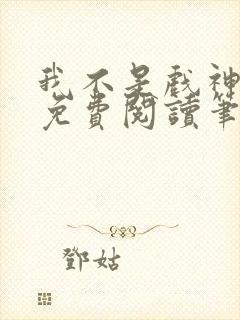 我不是戲神
免費閱讀筆
鄧姑